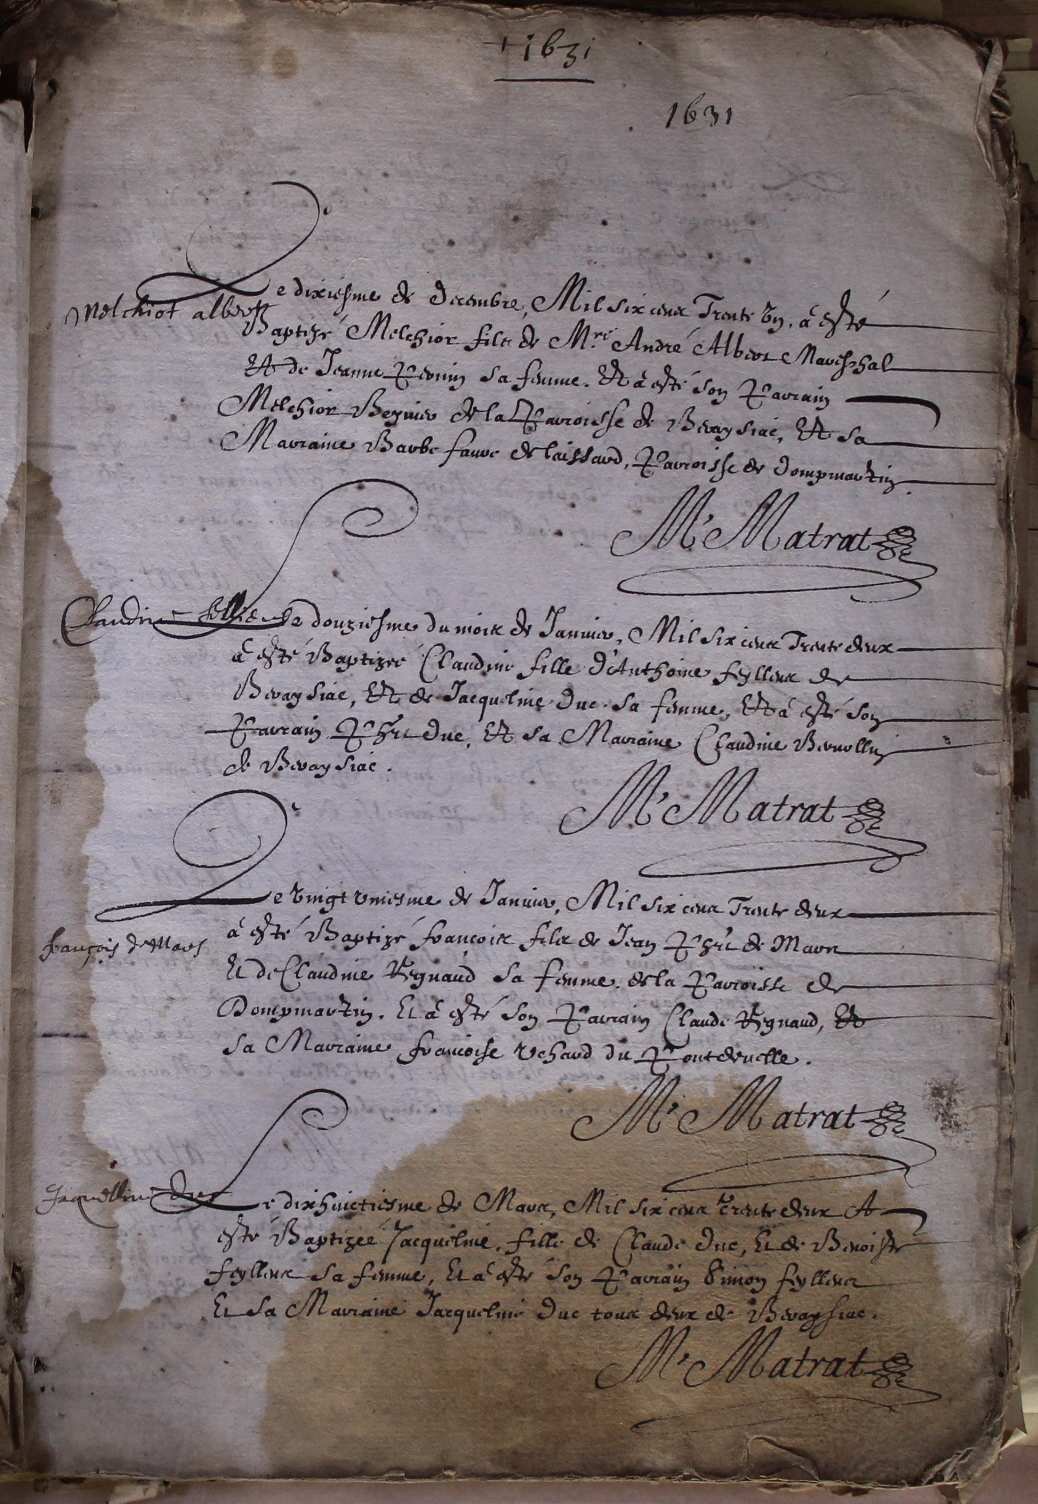 1631
1631
Melchiot albert
Le dixiesme de decembre, Mil six cens Trente Un. à esté
Baptizé Melchior filz de Mre André Albert Mareschal
Et de Jeanne Perrin sa femme. Et à esté son Parrain
Melchior de la Parroisse de Bevaysiac, Et sa
Marraine Barbe faure de laissard, Parroisse de dompmartin.
Mr Matrat
Claudine
Le douziesme du mois de Janvier, Mil six cens Trente deux
à esté Baptizée Claudine fille d'Anthoine feyllens de
Bevaysiac, Et de Jacqueline Duc sa femme, Et à esté son
Parrain Duc, Et sa Marraine Claudine
de Bevaysiac.
Mr Matrat
françois de Mars
Le vingt uniesme de Janvier, Mil six cens Trente deux
à esté Baptizé francois filz de Jean de Mars
Et de Claudine Regnaud sa femme. de la Parroisse de
Dompmartin. Et à esté son Parrain Claude Regnaud, Et
sa Marraine francoise Vchard du Pontdevelle.
Mr Matrat
Jaquelline Duc
Le dixhuictiesme de Mars, Mil six cens trente deux A
esté Baptizée Jacqueline, fille de Claude Duc, Et de Benoiste
feyllens sa femme, Et à esté son Parrain Simon feyllens
Et sa Marraine Jacqueline Duc tous deux de Bevaysiac.
Mr Matrat